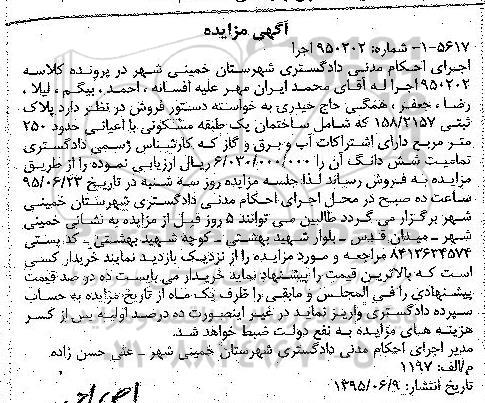 آگهی مزایده
۵۶۱۷-۱- شماره: ۹۵۰۲۰۲ اجرا
اجرای احکام مدنی دادگستری شهرستان خمینی شهر در پرونده کلاسه
۹۵۰۲۰۲اجرا له آقای محمد ایران مهر علیه افسانه ، احمد ، بیگم ، لیلا ،
رضا ، جعفر ، همگی حاج حیدری به خواسته دستور فروش در نظر دارد پلاک
ثبتی ۱۵۸/۲۱۵۷ که شامل ساختمان یک طبقه مسکونی با اعیانی حدود ۲۵۰
متر مربع دارای اشتراکات آب و برق و گاز که کارشناس رسمی دادگستری
تمامیت شش دانگ آن را ریال ارزیابی نموده را از طریق
مزایده به فروش رساند لذا جلسه مزایده روز سه شنبه در تاریخ ۹۵/۰۶/۲۳
ساعت ده صبح در محل اجرای احکام مدنی دادگستری شهرستان خمینی
شهر برگزار می گردد طالبین می توانند ۵ روز قبل از مزایده به نشانی خمینی
شهر - میدان قدس - بلوار شهید بهشتی - کوچه شهید بهشتی - کد پستی
۸۴۱۳۶۳۴۵۷۴ مراجعه و مورد مزایده را از نزدیک بازدید نمایند خریدار کسی
است که بالاترین قیمت را پیشنهاد نماید خریدار می بایست ده در صد قیمت
پیشنهادی را فی المجلس و مابقی را ظرف یک ماه از تاریخ مزایده به حساب
سپرده دادگستری واریز نماید در غیر اینصورت ده درصد اولیه پس از کسر
هزینه های مزایده به نفع دولت ضبط خواهد شد.
مدیر اجرای احکام مدنی دادگستری شهرستان خمینی شهر - علی حسن زاده
م/الف: ۱۱۹۷
تاریخ انتشار: ۱۳۹۵/۰۶/۹